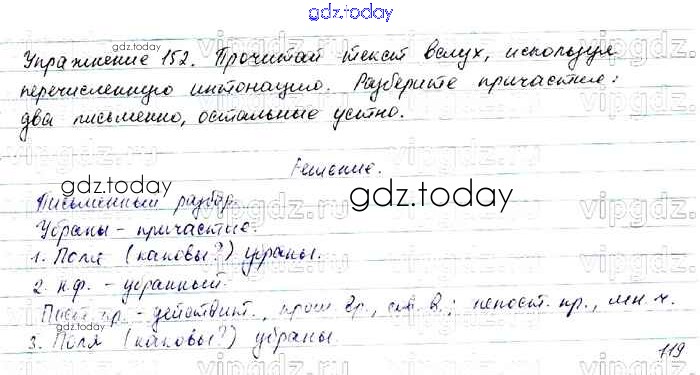 gdz.today
Упражнение 152. Прочитай текст вслух, используя
gdz.today
перечисленную интонацию. Разберите причастие:
два письменно, остальные устно.
Решение.
gdz.today
gdz.today
Письменный разбор.
Убраны - причастие.
1. Поля (каковы?) убраны.
2. н.ф. - убранный.
Пост. пр. - действит., прош. вр., сов. в.; непост. пр., мн. ч.
3. Поля (каковы?) убраны.
119
vipgdz.ru